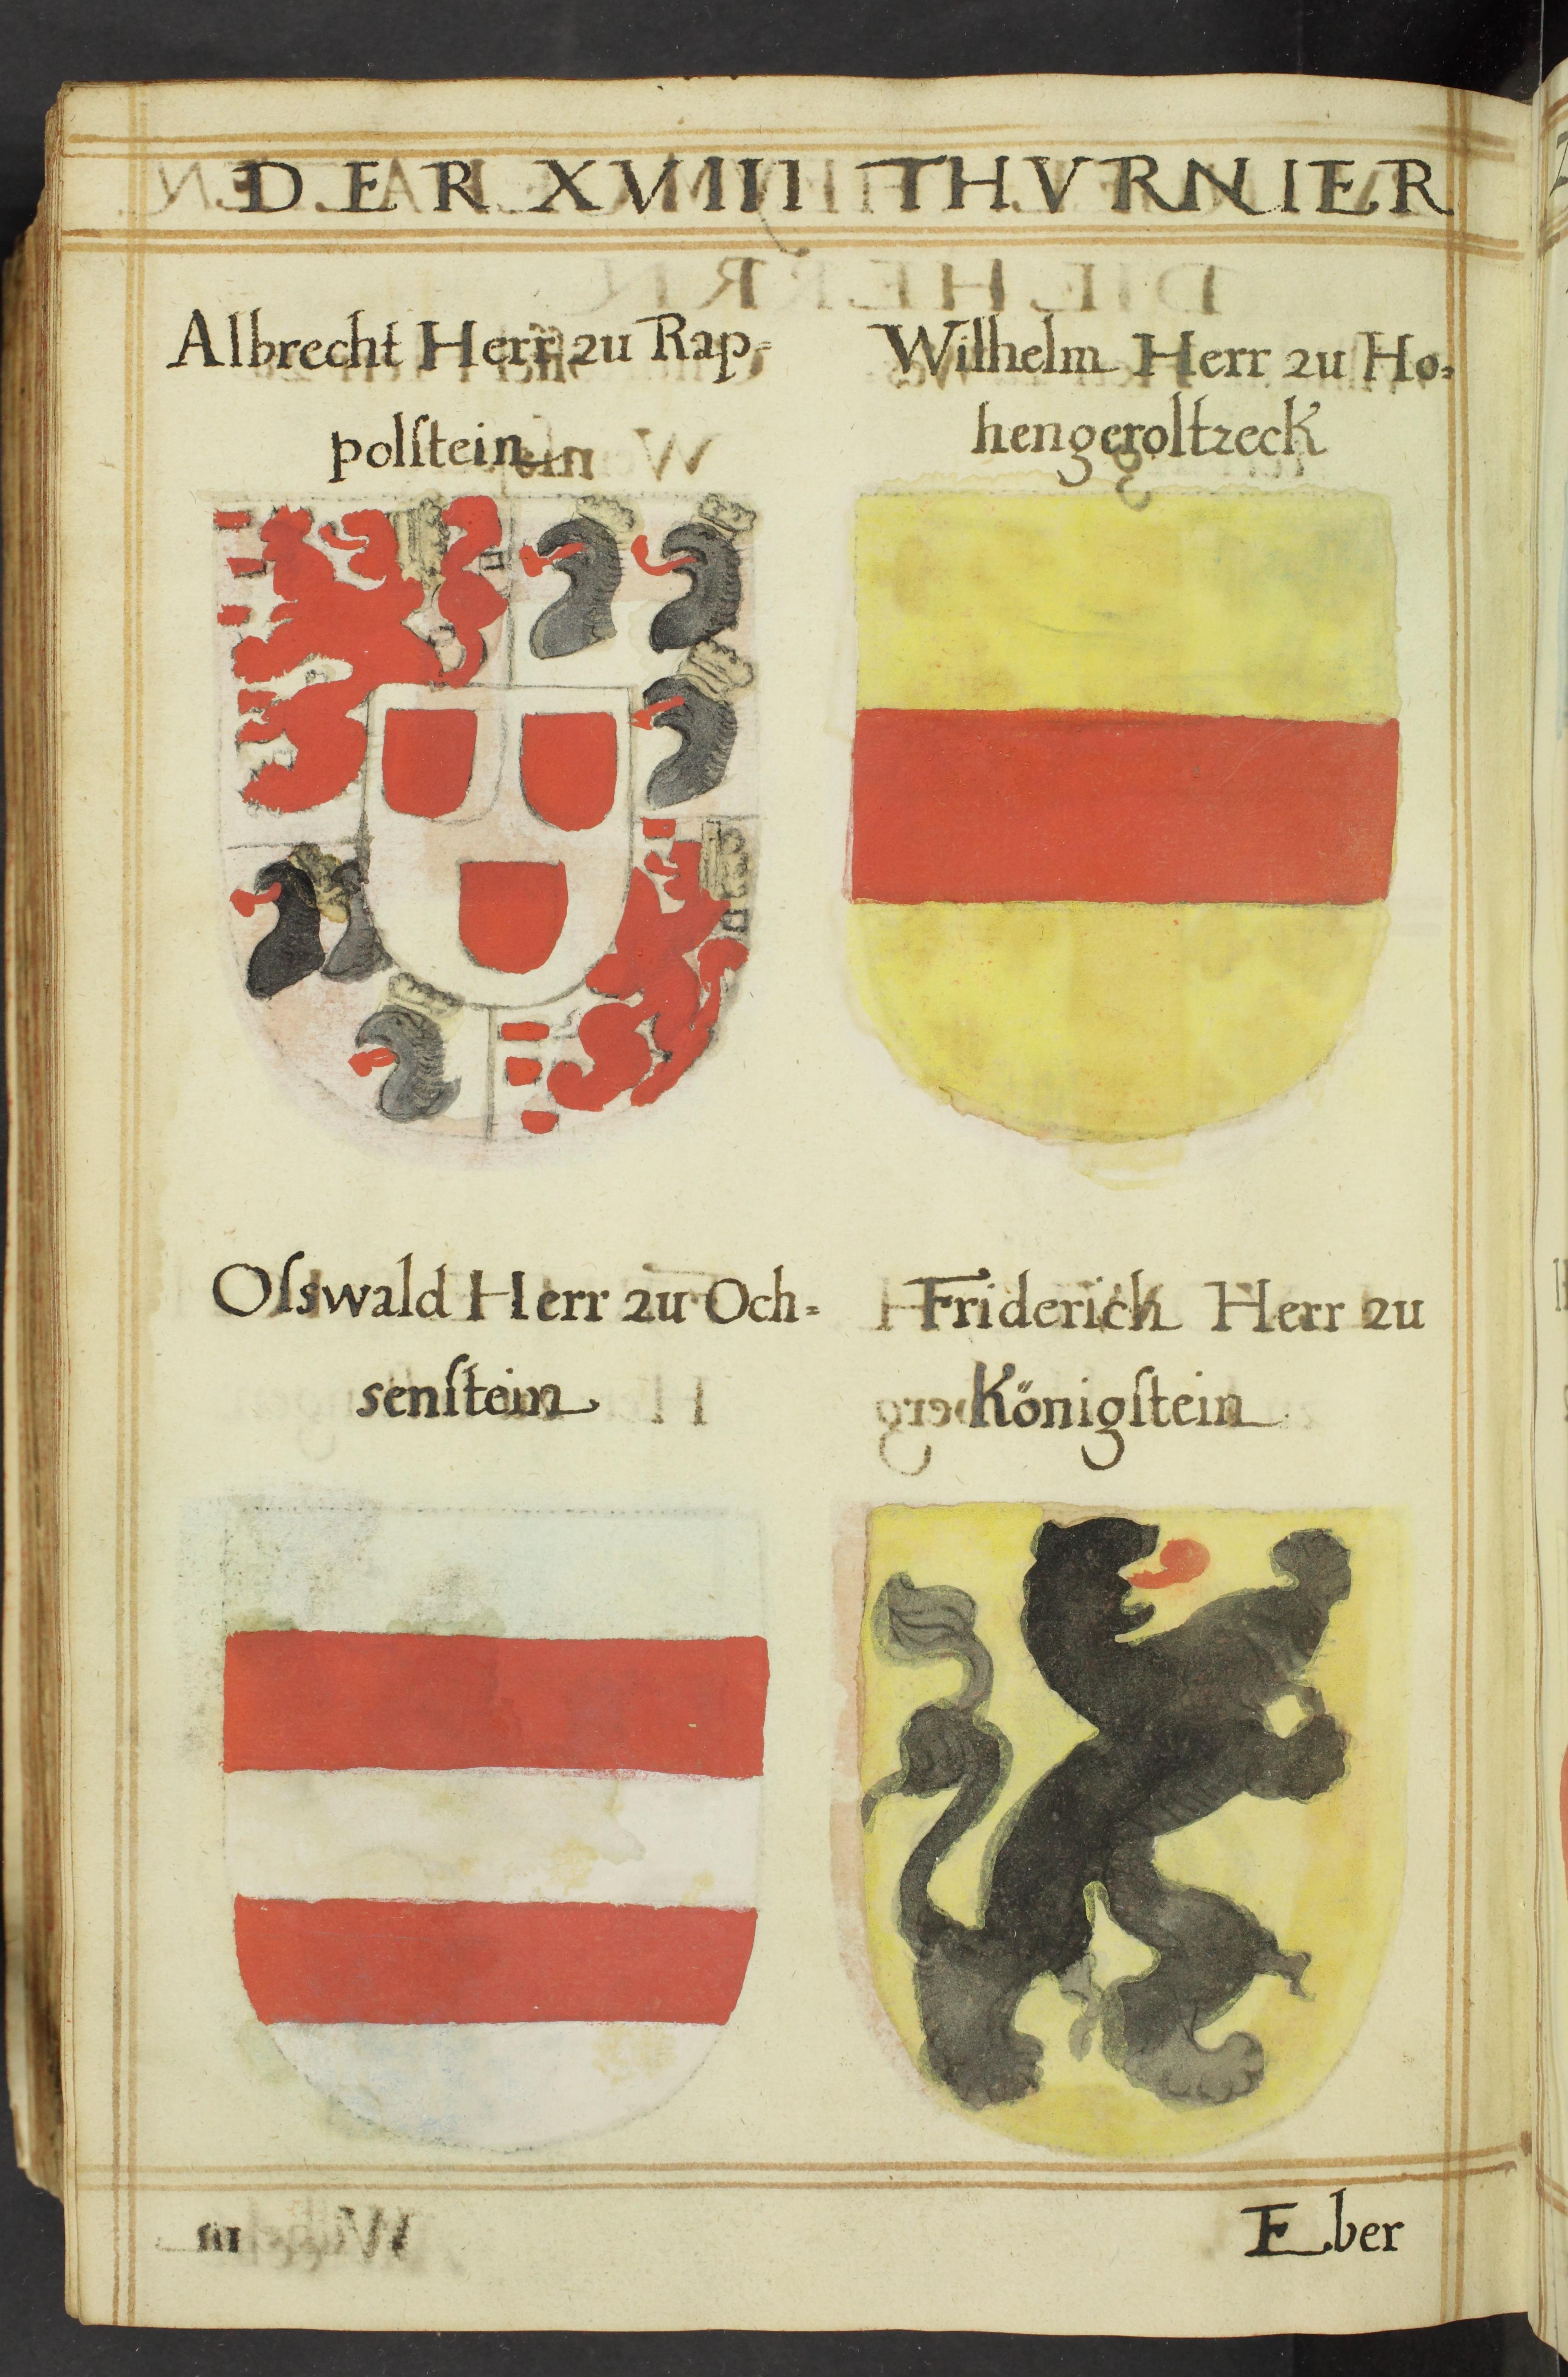 DER XVIIII THVRNIER
Albrecht Herr zu Rap=
polſtein
Wilhelm Herr zu Ho=
hengeroltzeck
Oſswald Herr zu Och=
senſtein
Friderich Herr zu
Königſtein
Eber